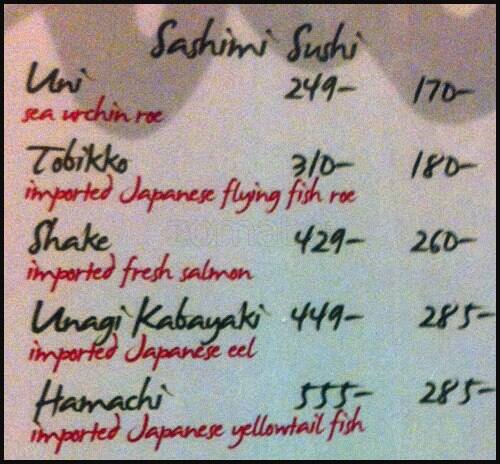 Sashimi Sushi
Uni 249- 170-
sea urchin roe
Tobikko 310- 180-
imported Japanese flying fish roe
Shake 429- 260-
imported fresh salmon
Unagi Kabayaki 449- 285-
imported Japanese eel
Hamachi 555- 285-
imported Japanese yellowtail fish